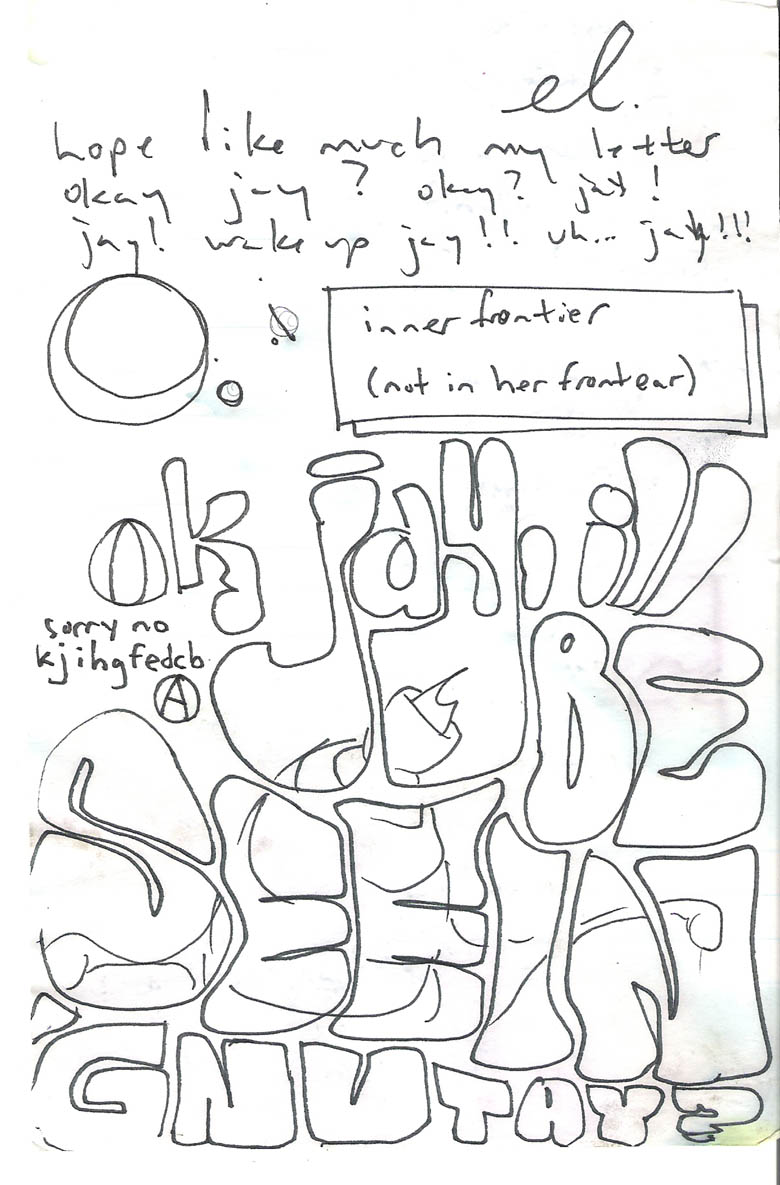 el.
hope like much my letter
okay jay? okay? jay!
jay! wake up jay!! uh... jay!!!
inner frontier
(not in her frontear)
ok jay, ill
BE
sorry no
kjihgfedcb
A
SEEIN
'G NU TAY?